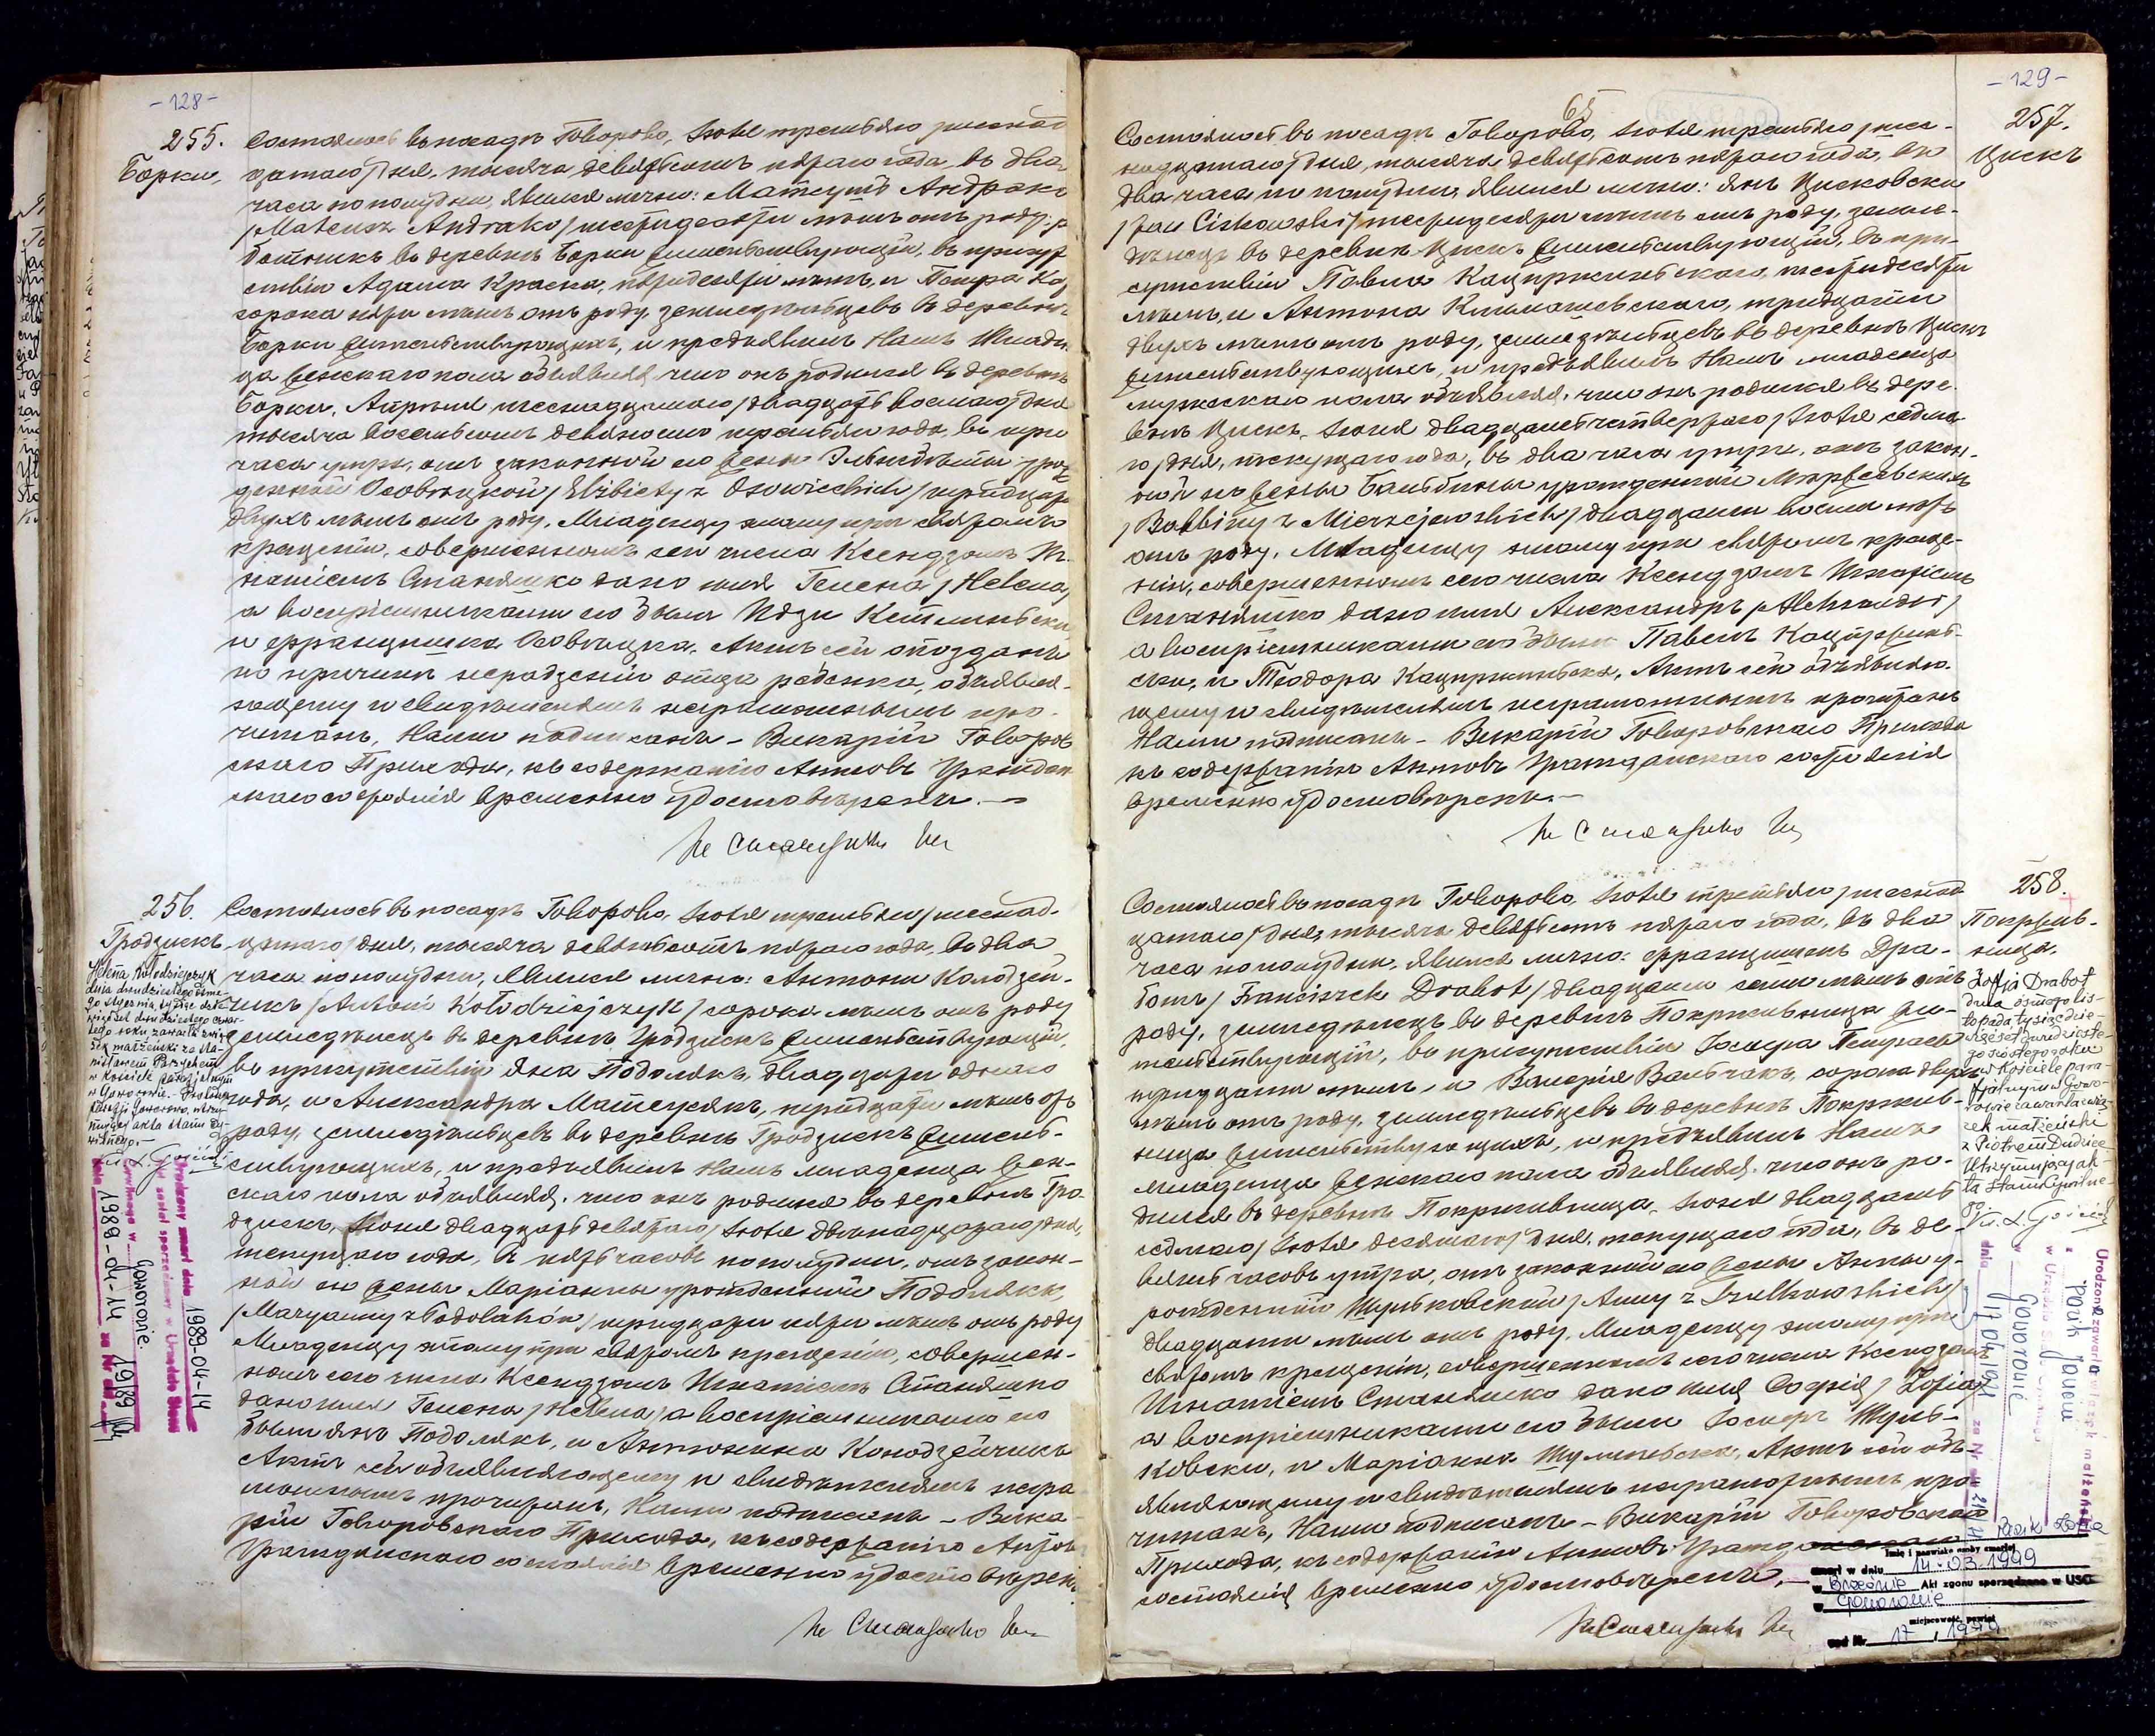 -128-
255.
Борки,
Состоялось въ посадѣ Говорово, Іюля третьяго /шестнад
цатаго/ дня, тысяча девятьсотъ пятаго года, въ два
часа по полудни, явился лично: Матеушъ Андрако
/Mateusz Andrako/ шестидесяти лѣтъ отъ роду, ра
ботникъ въ деревнѣ Борки жительствующій, въ присут
ствіи Адама Краски, пятидесяти лѣтъ, и Петра
сорока пяти лѣтъ отъ роду, земледѣльцевъ въ деревнѣ
Борки жительствующихъ, и предъявилъ Намъ Младен
ца женскаго пола объявляя, что онъ родился въ деревнѣ
Борки, Апрѣля шестнадцатаго /двадцать восьмаго/ дня
тысяча восемьсотъ девяносто третьяго года, въ три
часа утра, отъ законной его жены Эльжбѣты урож
денной Осовѣцкой /Elżbiety z Osowieckich/ тридцати
двухъ лѣтъ отъ роду. Младенцу этому при святомъ
крещеніи, совершенномъ сего числа Ксендзомъ Иг
натіемъ Станяшко дано имя Гелена /Helena/
а воспріемниками его были Идзи
и Францишка Осовѣцка. Актъ сей опозданъ
по причинѣ нерадѣнія отца ребенка, объявля-
ющему и свидѣтелямъ неграмотнымъ про-
читанъ, Нами подписанъ - Викарій Говоров
скаго Прихода, къ содержанію Актовъ Граждан
скаго состоянія временно удостовѣренъ. -
256.
Гродзискъ
Состоялось въ посадѣ Говорово, Іюля третьяго /шестнад-
цатаго/ дня, тысяча девятьсотъ пятаго года, въ два
часа по полудни, явился лично: Антони Колодзей-
чикъ /Antoni Kołodziejczyk/ сорока лѣтъ отъ роду
земледѣлецъ въ деревнѣ Гродзискъ жительствующій,
въ присутствіи Яна Подолякъ, двадцати одного
года, и Александра Матеусякъ, тридцати лѣтъ отъ
роду, земледѣльцевъ въ деревнѣ Гродзискъ житель-
ствующихъ, и предъявилъ Намъ младенца жен-
скаго пола объявляя, что онъ родился въ деревнѣ Гро-
дзискъ, Іюня двадцать девятаго /Іюля двѣнадцатаго/ дня,
текущаго года, въ пять часовъ по полудни, отъ закон-
ной его жены Маріанны урожденной Подолякъ,
/Maryanny z Podolaków/ тридцати пяти лѣтъ отъ роду
Младенцу этому при святомъ крещеніи, совершен-
номъ сего числа Ксендзомъ Игнатіемъ Станяшко
дано имя Гелена /Helena/ а воспріемниками его
были Янъ Подолякъ, и Антонина Колодзейчикъ
Актъ сей объявляющему и свидѣтелямъ негра-
мотнымъ прочитанъ, Нами подписанъ - Вика-
рій Говоровскаго Прихода, къ содержанію Актовъ
Гражданскаго состоянія временно удостовѣренъ
Helena Kołodziejczyk
dnia dwudziestego ósme-
go stycznia tysiąc dzie-
więćset dwudziestego czwar-
tego roku zawarła zwią-
zek małżeński ze Sta-
nisławem
w kościele parafjalnym
w Goworowie.
Parafji Goworowo, utrzy-
mujący akta stanu cy-
wilnego. -
Urodzony zmarł dnia 1989-04-14
Akt zestał sporządzony w Urzędzie Stanu
Cywilnego w Goworowie
dnia 1989-04-14 za Nr 19/89
-129-
65
257.
Цискъ
Состоялось въ посадѣ Говорово, Іюля третьяго /шест-
надцатаго/ дня, тысяча девятьсотъ пятаго года, въ
два часа по полудни, явился лично: Янъ Цисковски
/Jan Ciskowski/ шестидесяти лѣтъ отъ роду, земле-
дѣлецъ въ деревнѣ Цискъ жительствующій, въ при-
сутствіи Павла Каципржинскаго, шестидесяти
лѣтъ, и Антона Климашевскаго, тридцати
двухъ лѣтъ отъ роду, земледѣльцевъ въ деревнѣ Цискъ
жительствующихъ, и предъявилъ Намъ младенца
мужескаго пола объявляя, что онъ родился въ дере-
внѣ Цискъ, Іюня двадцать четвертаго /Іюля седьма-
го/ дня, текущаго года, въ два часа утра, отъ закон-
ной его жены Бальбины урожденной Мѣржеевскихъ
/Balbiny z Mierzejewskich/ двадцати восьми лѣтъ
отъ роду. Младенцу этому при святомъ креще-
ніи, совершенномъ сего числа Ксендзомъ Игнатіемъ
Станяшко дано имя Александръ /Aleksander/
а воспріемниками его были Павелъ Каципржинь-
ски, и Теодора Каципржиньска. Актъ сей объявляю-
щему и свидѣтелямъ неграмотнымъ прочитанъ
Нами подписанъ - Викарій Говоровскаго Прихода
къ содержанію Актовъ Гражданскаго состоянія
временно удостовѣренъ. -
258.
Покржив-
ница.
Состоялось въ посадѣ Говорово, Іюля третьяго /шестнад-
цатаго/ дня, тысяча девятьсотъ пятаго года, въ два
часа по полудни, явился лично: Францишекъ Дра-
ботъ /Franciszek Drabot/ двадцати семи лѣтъ отъ
роду, земледѣлецъ въ деревнѣ Покржывница жи-
тельствующій, въ присутствіи Іосифа
тридцати лѣтъ, и Валерія Вальчакъ, сорока двухъ
лѣтъ отъ роду, земледѣльцевъ въ деревнѣ Покржив-
ница жительствующихъ, и предъявилъ Намъ
младенца женскаго пола объявляя, что онъ ро-
дился въ деревнѣ Покржывница, Іюня двадцать
седьмаго /Іюля десятаго/ дня, текущаго года, въ де-
вять часовъ утра, отъ законной его жены Анны у-
рожденной Шулковской /Anny z Szulkowskich/
двадцати лѣтъ отъ роду. Младенцу этому при
святомъ крещеніи, совершенномъ сего числа Ксендзомъ
Игнатіемъ Станяшко дано имя Софія /Zofia/
а воспріемниками его были Іосифъ Шуль-
ковски, и Маріанна. Актъ сей объ-
являющему и свидѣтелямъ неграмотнымъ про-
читанъ, Нами подписанъ - Викарій Говоровскаго
Прихода, къ содержанію Актовъ Гражданскаго
состоянія временно удостовѣренъ. -
Zofja Drabot
dnia ósmego lis-
topada tysiąc dzie-
więćset dwudzieste-
go szóstego roku
w kościele para-
fjalnym w Gowo-
rowie zawarła zwią-
zek małżeński
z Piotrem
Utrzymujący ak-
ta Stanu Cywilne-
go
Urodzona zawarła związek małżeński
z Pasik Janem
w Goworowie
dnia 17.04.1971 za Nr
Pasik Zofia
imię i nazwisko osoby zmarłej
zmarł w dniu 14-03-1999
w Brzeźnie Akt zgonu sporządzono w USC
w Goworowie
miejscowość, powiat
pod Nr. 17 / 1999